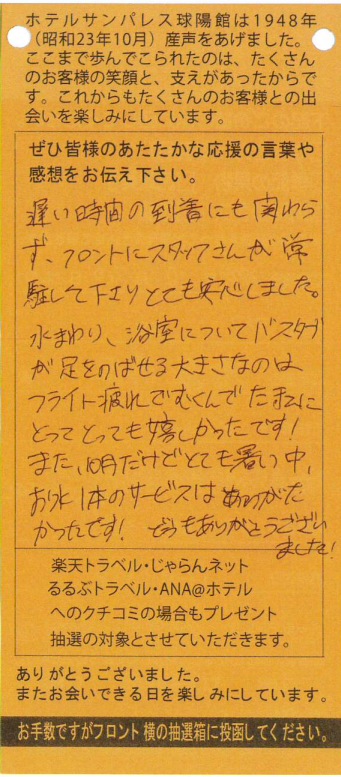 ホテルサンパレス球陽館は1948年
（昭和23年10月）産声をあげました。
ここまで歩んでこられたのは、たくさん
のお客様の笑顔と、支えがあったからで
す。これからもたくさんのお客様との出
会いを楽しみにしています。
ぜひ皆様のあたたかな応援の言葉や
感想をお伝え下さい。
遅い時間の到着にも関わら
ず、フロントにスタッフさんが常
駐して下さりとても安心しました。
水まわり、浴室についてバスタブ
が足をのばせる大きさなのは
フライト疲れでむくんでた私に
とってとっても嬉しかったです!
また、10月だけどとても暑い中、
お水1本のサービスはありがた
かったです! どうもありがとうござい
ました!
楽天トラベル・じゃらんネット
るるぶトラベル・ANA@ホテル
へのクチコミの場合もプレゼント
抽選の対象とさせていただきます。
ありがとうございました。
またお会いできる日を楽しみにしています。
お手数ですがフロント横の抽選箱に投函してください。